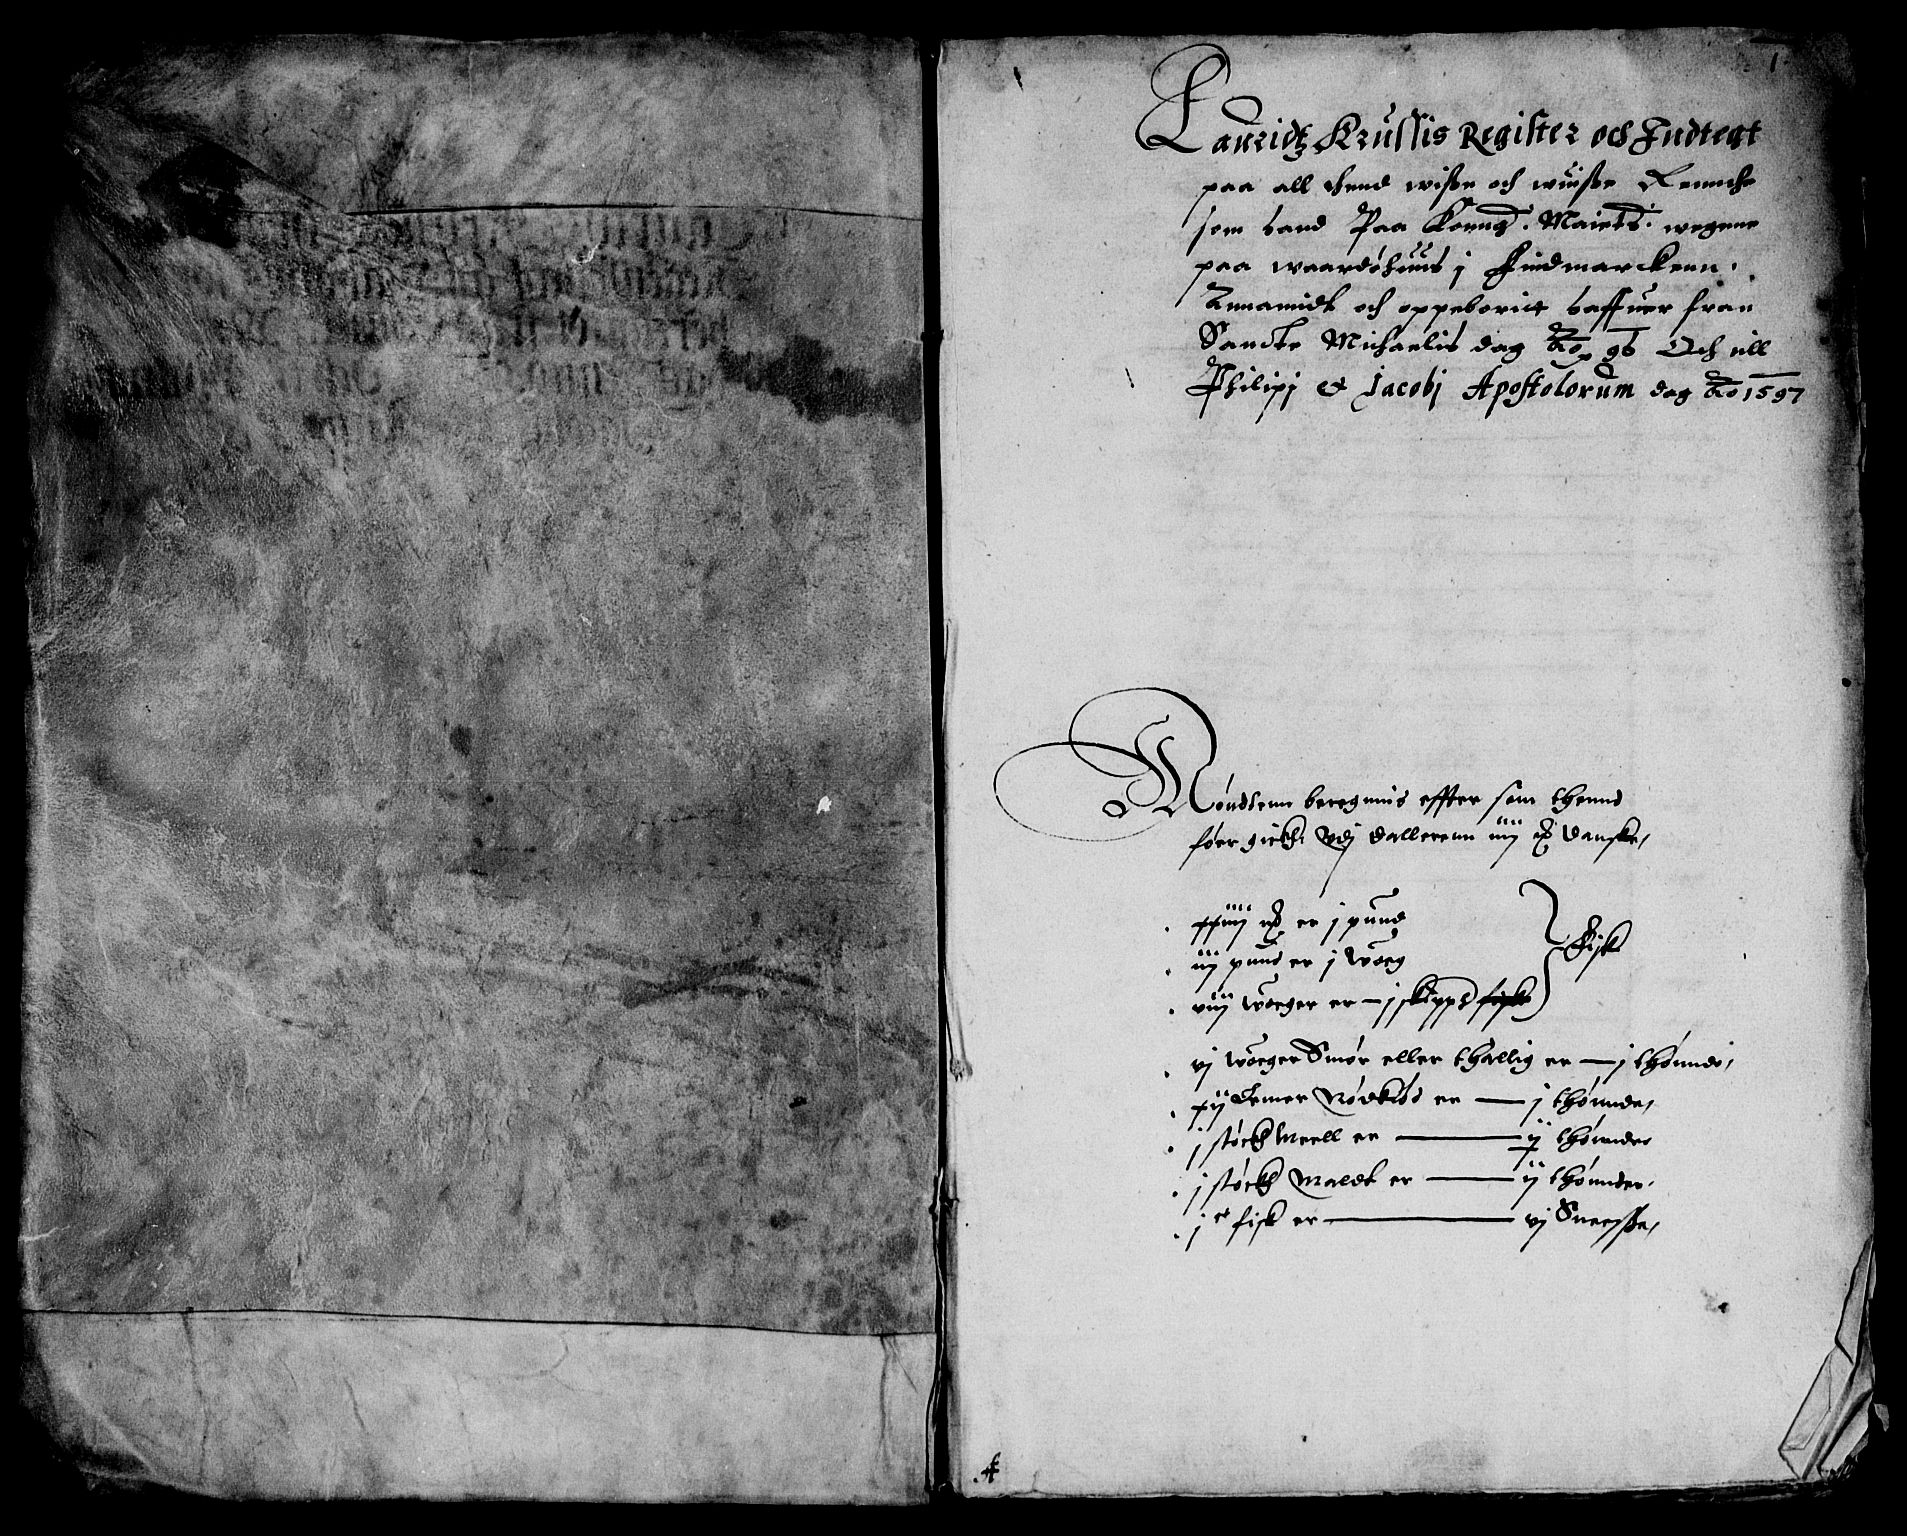 1
Lauridtz Krussis Register och Indtegt
paa all thend wisse och wuisse Rennthe
som hand Paa Konng: Maiets: wegenn
paa Waardøhuus j Findmarckenn
Annamidt och oppeborit haffuer fran
Sancte Michaelis dag Ao 96 Och till
Philipj et Jacobj Apostolorum dag Ao 1597
Møndtenn beregnnis effter som thennd
føer gick Vdj dallerenn iiij ₰ danske,
xxiiij ₰ er j pund
iij pund er j Woeg
viij Woeger er — j skippd fiske
Fisk
vj Woeger Smør eller thallig er — j thønnde,
xij Lemer Nødkiød er — j thønnde,
j støck Meell er — ij thønnder
j støck Maldt er — ij thønnder,
j c fisk er — vj Sneesse,
A